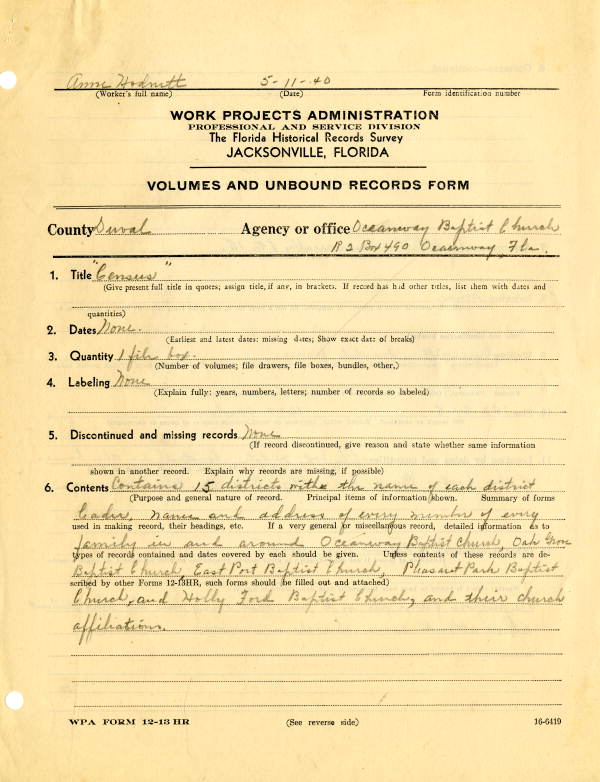 Anne Hodnett 5-11-40
(Worker's full name) (Date) Form identification number
WORK PROJECTS ADMINISTRATION
PROFESSIONAL AND SERVICE DIVISION
The Florida Historical Records Survey
JACKSONVILLE, FLORIDA
VOLUMES AND UNBOUND RECORDS FORM
County Duval Agency or office Oceanway Baptist Church
R 2 Box 490 Oceanway, Fla.
1. Title "Census"
(Give present full title in quotes; assign title, if any, in brackets. If record has had other titles, list them with dates and
quantities)
2. Dates None.
(Earliest and latest dates: missing dates; Show exact date of breaks)
3. Quantity 1 file box.
(Number of volumes; file drawers, file boxes, bundles, other,)
4. Labeling None
(Explain fully: years, numbers, letters; number of records so labeled)
5. Discontinued and missing records None
(If record discontinued, give reason and state whether same information
shown in another record. Explain why records are missing, if possible)
6. Contents Contains 15 districts with the name of each district
(Purpose and general nature of record. Principal items of information shown. Summary of forms
Leader, name and address of every member of every
used in making record, their headings, etc. If a very general or miscellaneous record, detailed information as to
family in and around Oceanway Baptist Church, Oak Grove
types of records contained and dates covered by each should be given. Unless contents of these records are de-
Baptist Church, East Port Baptist Church, Pleasant Park Baptist
scribed by other Forms 12-13HR, such forms should be filled out and attached)
Church, and Holly Ford Baptist Church, and their church
affiliations.
WPA FORM 12-13 HR (See reverse side) 16-6419